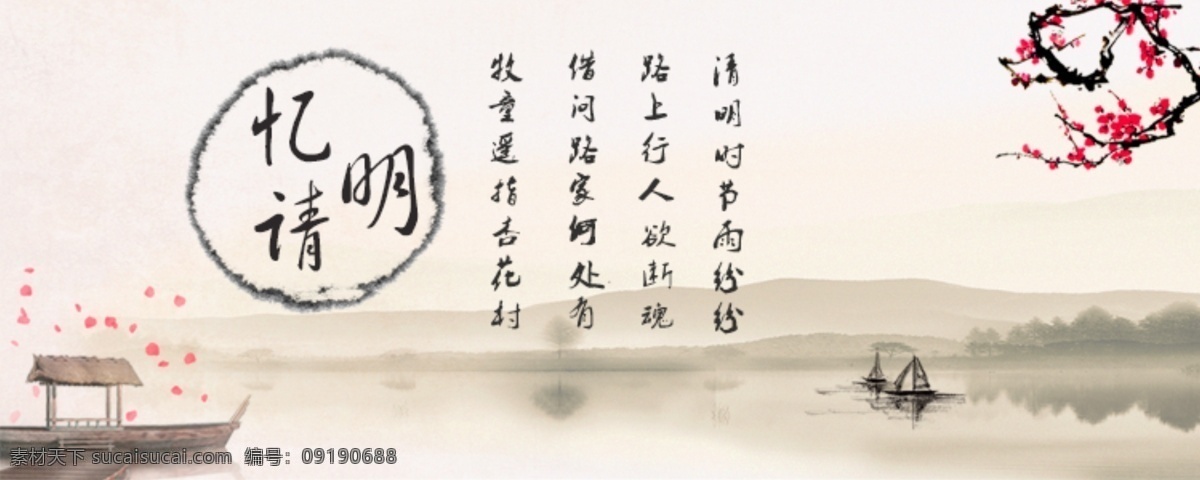 忆请明
清明时节雨纷纷
路上行人欲断魂
借问路家何处有
牧童遥指杏花村
素材天下 sucaisucai.com 编号：09190688